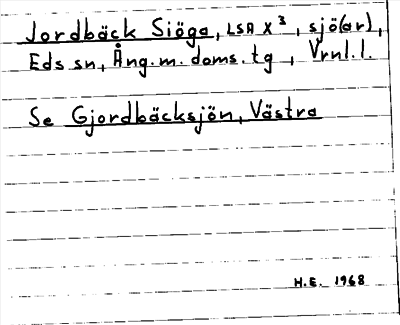 Jordbäck Siöga, LSA X³, sjö(ar),
Eds sn, Ång.m.doms.tg, Vrml.l.
Se Gjordbäcksjön, Västra
H.E. 1968